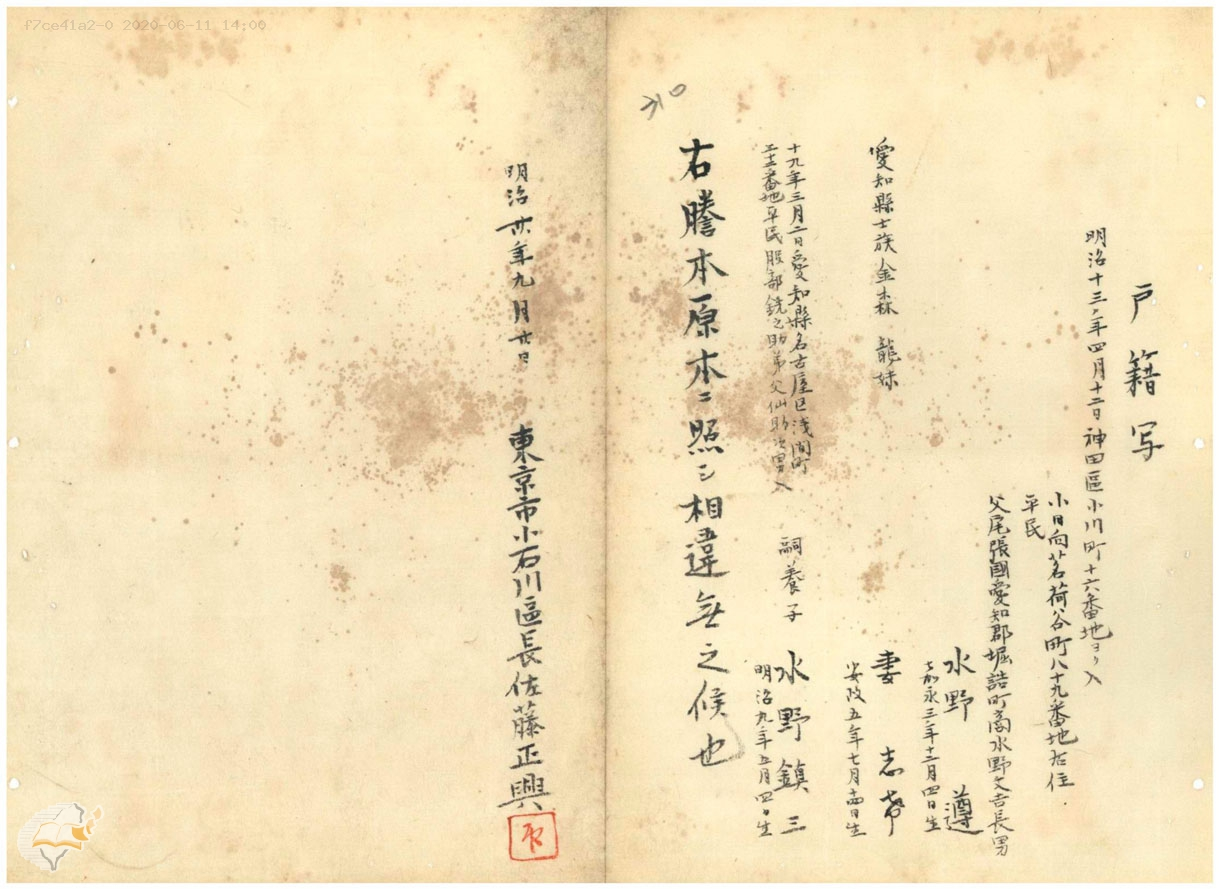 f7ce41a2-0 2020-06-11 14:00
戸籍写
明治十三年四月十二日神田區小川町十六番地ヨリ入
小日向茗荷谷町八十九番地居住
平民
父尾張國愛知郡堀詰町商水野文吉長男
水野 遵
嘉永三年十二月四日生
愛知縣士族金森 龍妹
妻 志希
安政五年七月 日生
十九年三月二日愛知縣名古屋区浅間町
番地平民服部銑之助弟父仙助次男入
嗣養子 水野鎮三
明治九年五月四日生
右謄本原本ニ照シ相違無之候也
明治廿 年九月廿 日
東京市小石川區長佐藤正興
印